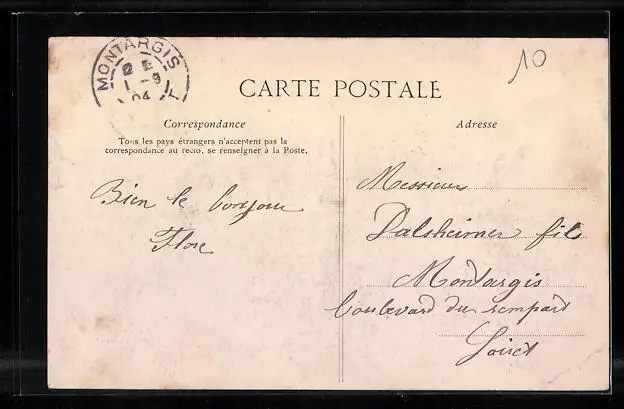 MONTARGIS
1 -9
04
10
CARTE POSTALE
Correspondance
Tous les pays étrangers n'acceptent pas la
correspondance au recto, se renseigner à la Poste.
Bien le bonjour
Flore
Adresse
Messieur
Dalsheimer fils
Montargis
boulevard du rempart
Loiret